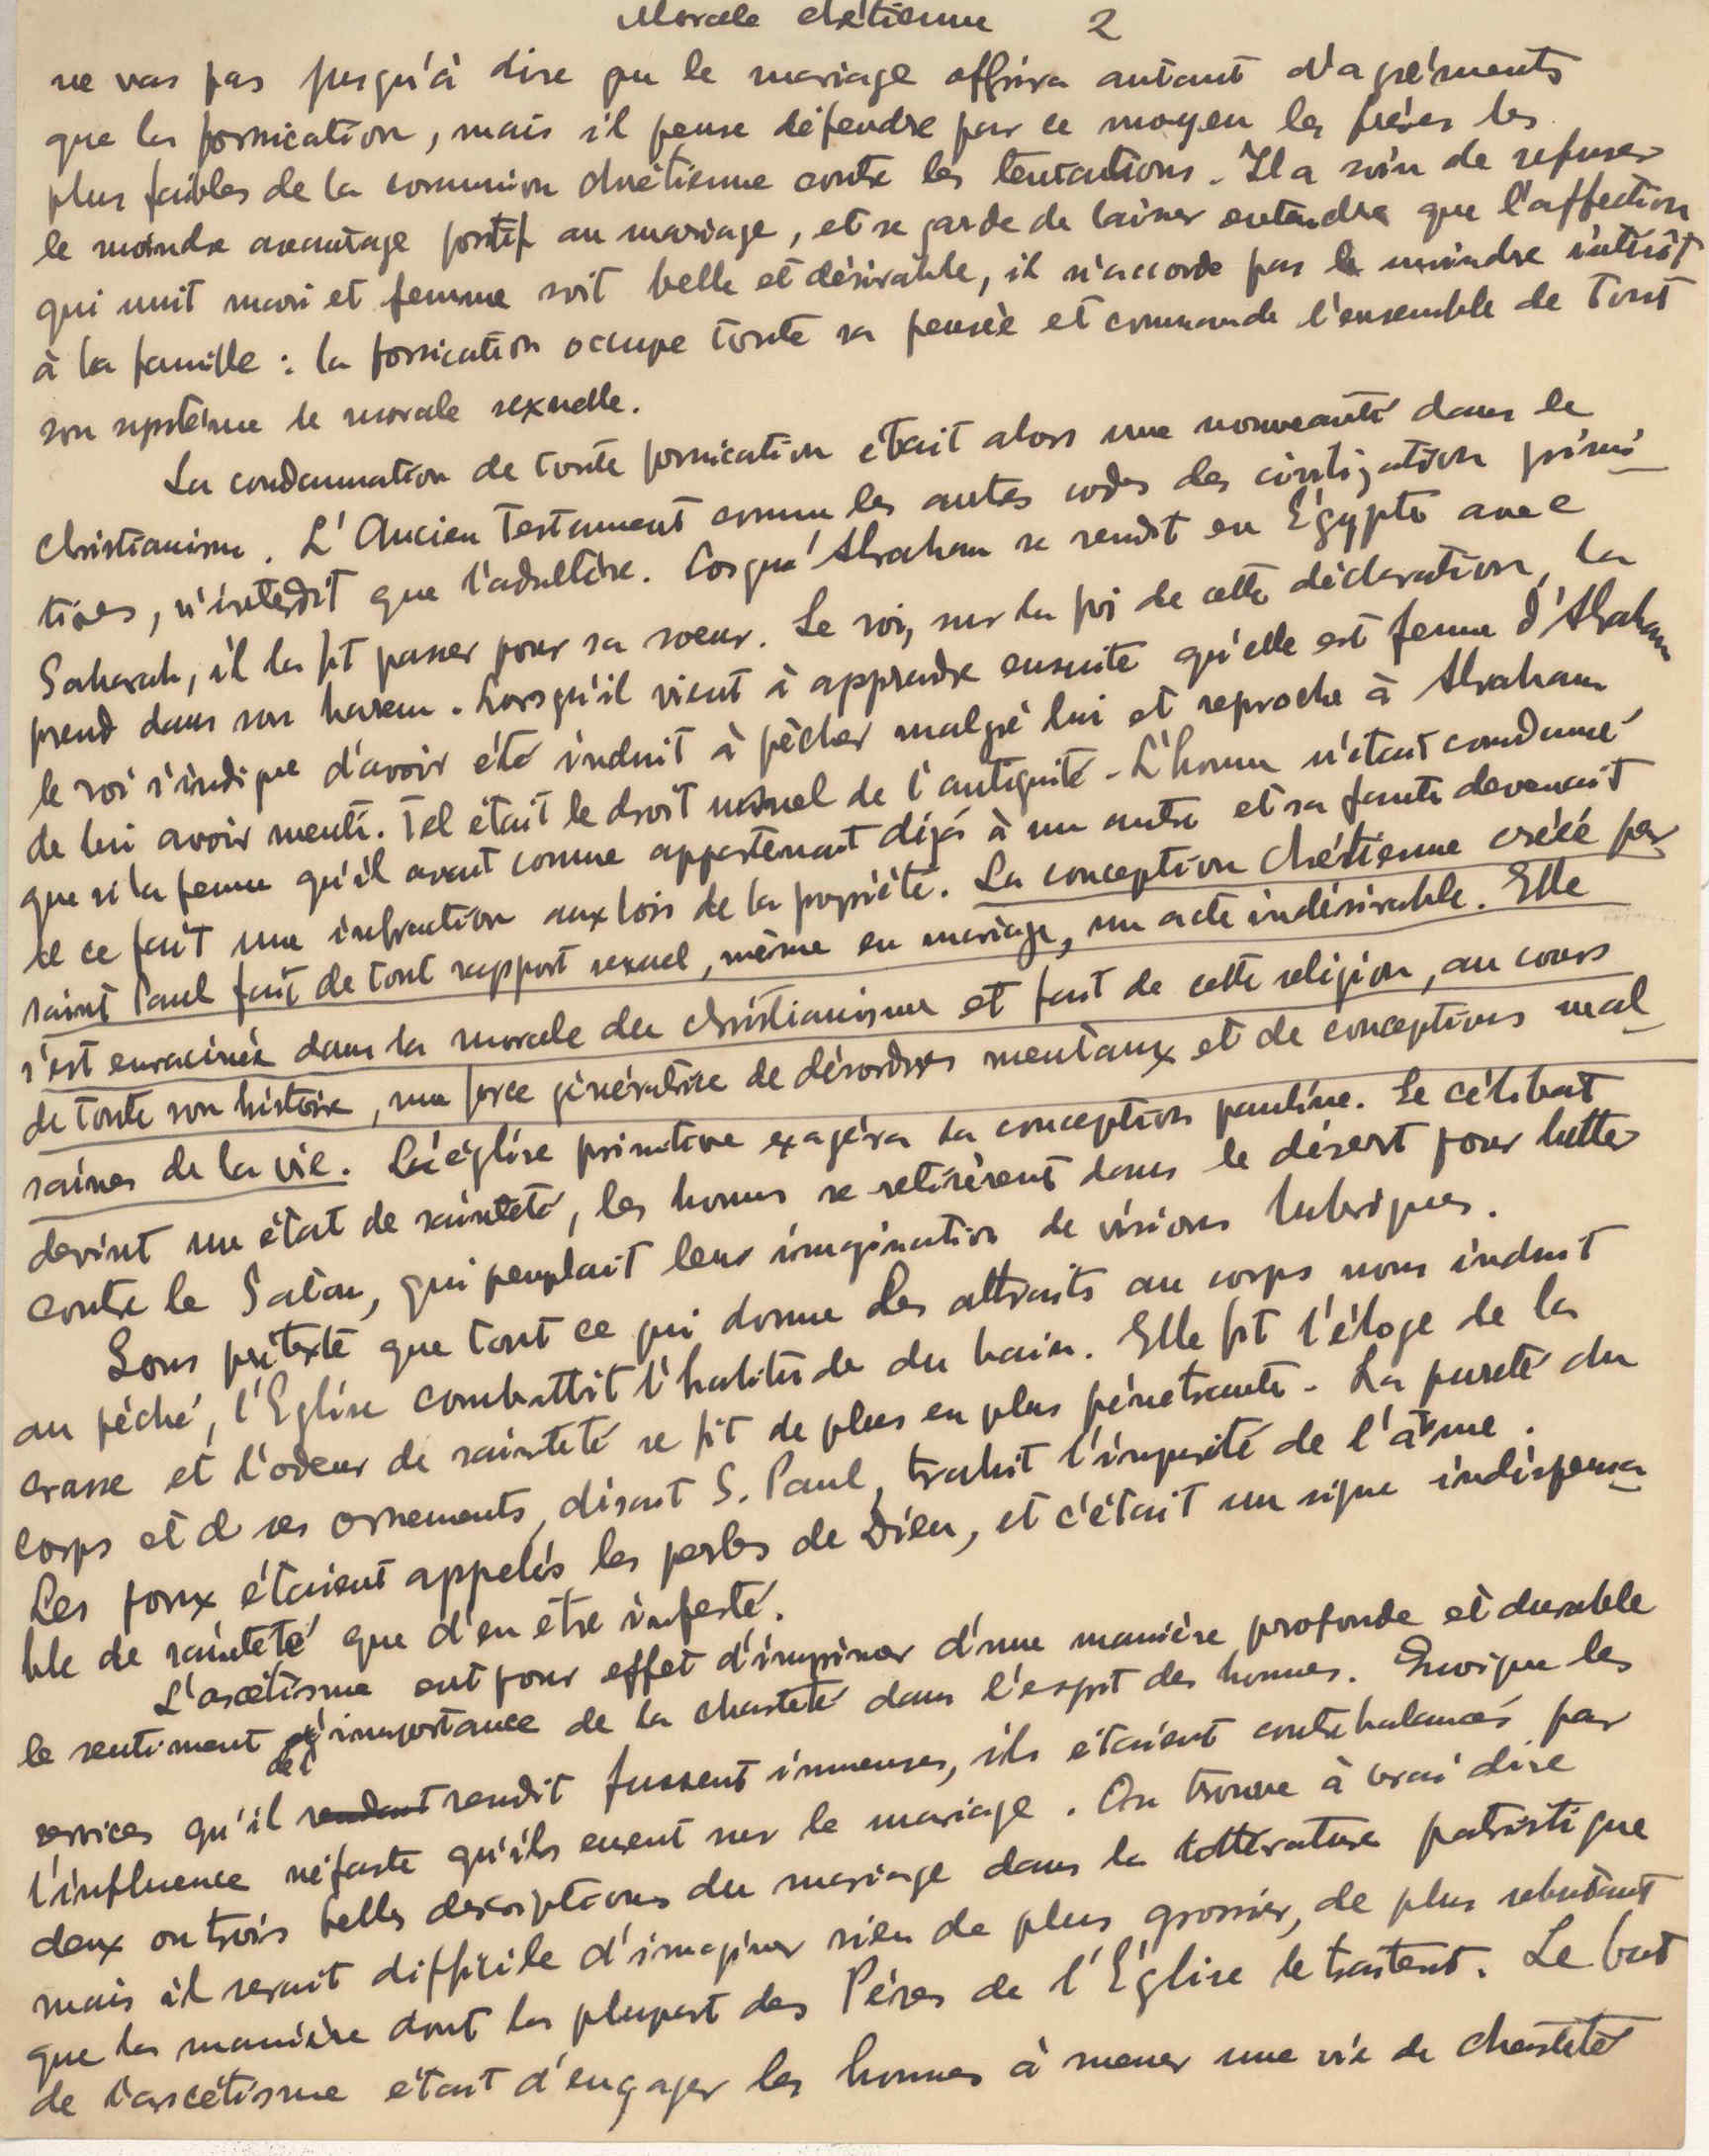 Morale chrétienne 2
ne vas pas jusqu'à dire que le mariage offrira autant d'agréments
que la fornication, mais il pense défendre par ce moyen les frères les
plus faibles de la communion chrétienne contre les tentations. Il a soin de refuser
le moindre avantage positif au mariage, et se garde de laisser entendre que l'affection
qui unit mari et femme soit belle et désirable, il n'accorde pas le moindre intérêt
à la famille : la fornication occupe toute sa pensée et commande l'ensemble de tout
son système de morale sexuelle.
La condamnation de toute fornication était alors une nouveauté dans le
christianisme. L'Ancien Testament comme les autes codes des civilization primi
tives, n'interdit que l'adultère. Lorqué Abraham se rendit en Égypte avec
Saharah, il la fit passer pour sa soeur. Le roi, sur la foi de cette déclaration, la
prend dans son harem. Lorsqu'il vient à apprendre ensuite qu'elle est femme d'Abraham
le roi s'indigne d'avoir été induit à pécher malgré lui et reproche à Abraham
de lui avoir menti. Tel était le droit usuel de l'antiquité. L'homme n'était condamné
que si la femme qu'il avait connue appartenait déjà à un autre et sa faute devenait
de ce fait une infraction aux lois de la propriété. La conception chrétienne créée par
saint Paul fait de tout rapport sexuel, même en mariage, un acte indésirable. Elle
s'est enracinée dans la morale du christianisme et fait de cette religion, au cours
de toute son histoire, une force génératrice de désordres mentaux et de conceptions mal
saines de la vie. L'église primitive exagéra la conception pauline. Le célibat
devint un état de sainteté, les hommes se retirèrent dans le désert pour lutter
contre le Satan, qui peuplait leur imagination de visions lubriques.
Sous prétexte que tout ce qui donne des attraits au corps nous induit
au péché, l'Eglise combattit l'habitude du bain. Elle fit l'éloge de la
crasse et l'odeur de sainteté se fit de plus en plus pénétrante. La pureté du
corps et d ses ornements, disait S. Paul, trahit l'impureté de l'âme.
Les poux étaient appelés les perles de Dieu, et c'était un signe indispensa
ble de sainteté que d'en être infesté.
L'ascétisme eut pour effet d'imprimer d'une manière profonde et durable
le sentiment de l'importance de la chasteté dans l'esprit des hommes. Quoique les
services qu'il rendait rendit fussent immenses, ils étaient contrebalancés par
l'influence néfaste qu'ils eurent sur le mariage. On trouve à vrai dire
deux ou trois belles descriptions du mariage dans la littérature patristique
mais il serait difficile d'imaginer rien de plus grossier, de plus rebutant
que la manière dont la plupart des Pères de l'Église le traitent. Le but
de l'ascétisme était d'engager les hommes à mener une vie de chasteté